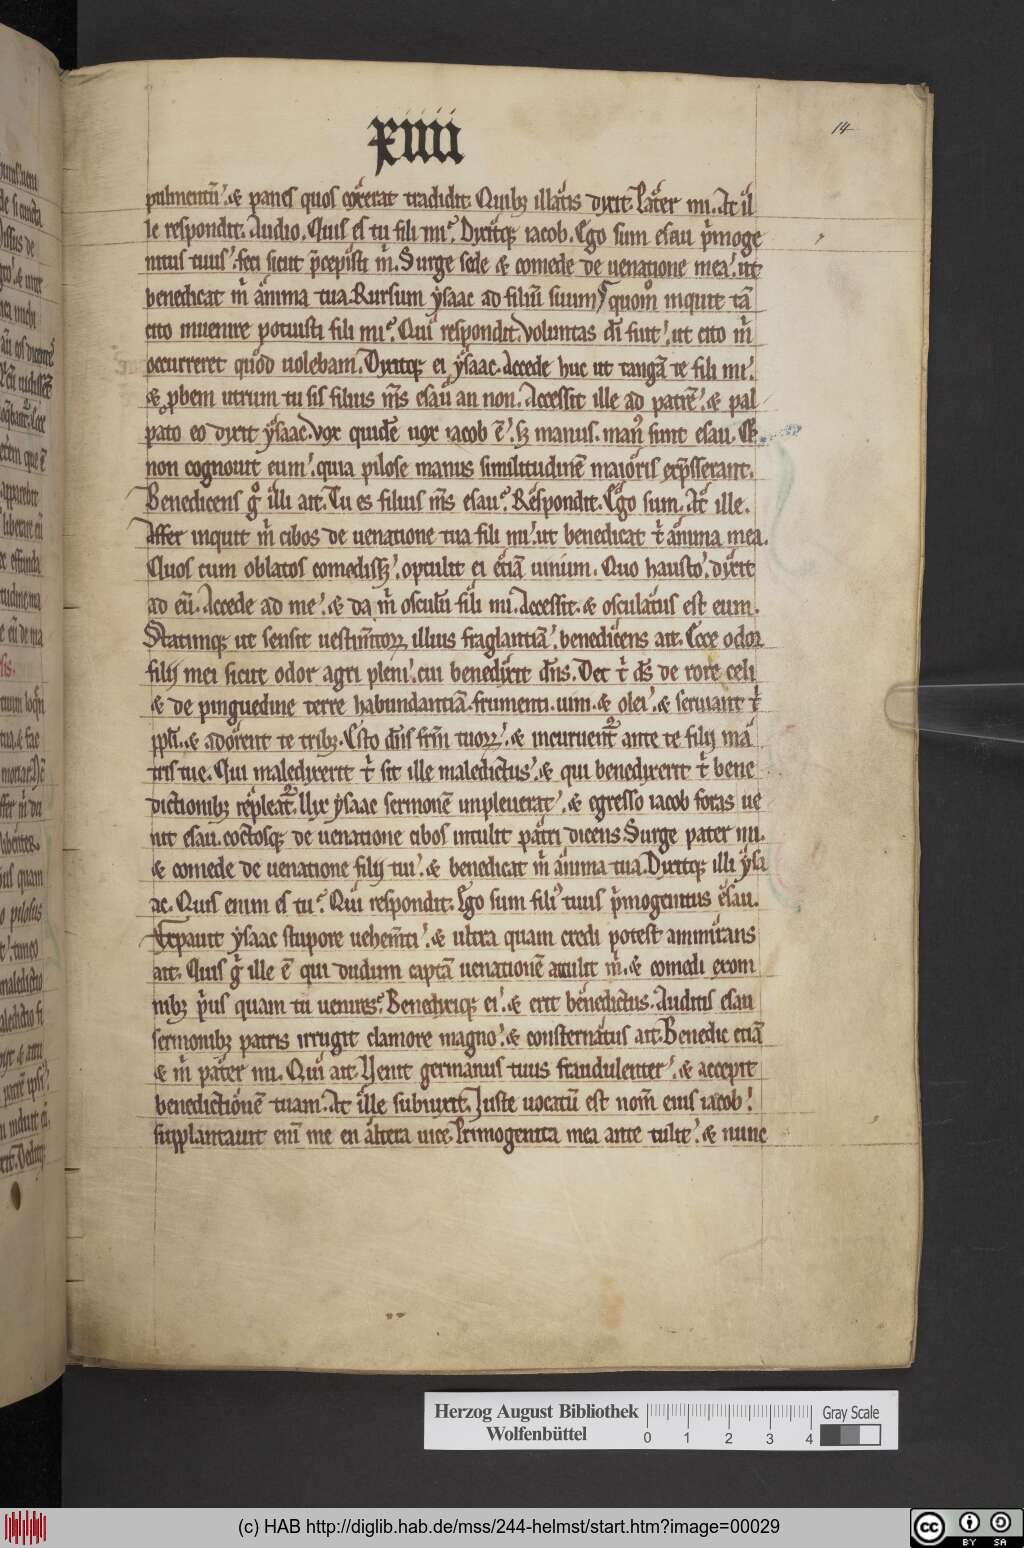 xiiii
14
pulmentū. & panes quos coxerat tradidit. Quibꝫ illatis dyxit. Pater mi. At il
le respondit. Audio. Quis es tu fili mi. Dyxitqꝫ iacob. Ego sum esau p̄moge
nitus tuus. feci sicut p̄cepisti m̄. Surge sede & comede de uenatione mea. ut
benedicat m̄ anima tua. Rursum ysaac ad filiū suum. quom̊ inquit tā
cito inuenire potuisti fili mi. Qui respondit. Voluntas dī fuit. ut cito m̄
occurreret quod uolebam. Dyxitqꝫ ei ysaac. Accede huc ut tangā te fili mi.
& ꝓbem utrum tu sis filius m̄s esau an non. Accessit ille ad patrē. & pal
pato eo dyxit ysaac. Vox quidē uox iacob ē. sꝫ manus. manꝰ sunt esau. Et
non cognouit eum. quia pilose manus similitudinē maioris exp̄sserant.
Benedicens g̊ illi ait. Tu es filius m̄s esau. Respondit. Ego sum. At ille.
Affer inquit m̄ cibos de uenatione tua fili mi. ut benedicat t̄ anima mea.
Quos cum oblatos comedissꝫ. optulit ei etiā uinum. Quo hausto. dyxit
ad eū. Accede ad me. & da m̄ osculū fili mi. Accessit. & osculatus est eum.
Statimqꝫ ut sensit uestim̄toꝝ illius fraglantiā. benedicens ait. Ecce odor
filij mei sicut odor agri pleni. cui benedixit dn̄s. Det t̄ ds̄ de rore celi
& de pinguedine terre habundantiā. frumenti. uini. & olei. & seruiant t̄
ppl̄i. & adorent te tribꝫ. Esto dn̄s fr̄m tuoꝝ. & incuruentᷣ ante te filij ma
tris tue. Qui maledyxerit t̄ sit ille maledictus. & qui benedyxerit t̄ bene
dictionibꝫ repleatᷣ. Vix ysaac sermonē impleuerat. & egresso iacob foras ue
nit esau. coctosqꝫ de uenatione cibos intulit patri dicens. Surge pater mi.
& comede de uenatione filij tui. & benedicat m̄ anima tua. Dyxitqꝫ illi ysa
ac. Quis enim es tu. Qui respondit. Ego sum filiꝰ tuus p̄mogenitus esau.
Expauit ysaac stupore uehem̄ti. & ultra quam credi potest ammirans
ait. Quis g̊ ille ē qui dudum captā uenationē attulit m̄. & comedi ex om
nibꝫ p̄us quam tu uenires. Benedixiqꝫ ei. & erit benedictus. Auditis esau
sermonibꝫ patris irrugiit clamore magno. & consternatus ait. Benedic etiā
& m̄ pater mi. Qui ait. Uenit germanus tuus fraudulenter. & accepit
benedictionē tuam. At ille subiunxit. Iuste uocatū est nom̄ eius iacob.
supplantauit eni me en altera uice. Primogenita mea ante tulit. & nunc
Herzog August Bibliothek
Wolfenbüttel
0 1 2 3 4
Gray Scale
(c) HAB http://diglib.hab.de/mss/244-helmst/start.htm?image=00029
cc BY SA